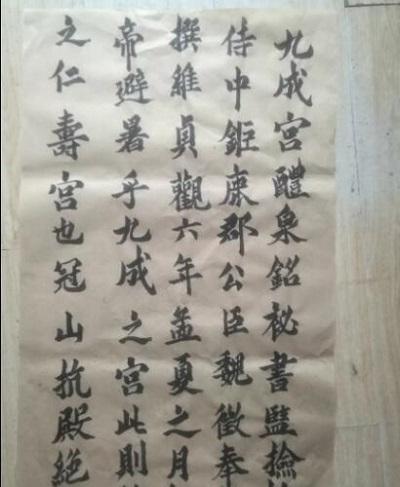 九成宮醴泉銘秘書監撿
侍中鉅鹿郡公臣魏徵奉
撰維貞觀六年孟夏之月
帝避暑乎九成之宮此則
之仁壽宮也冠山抗殿絕